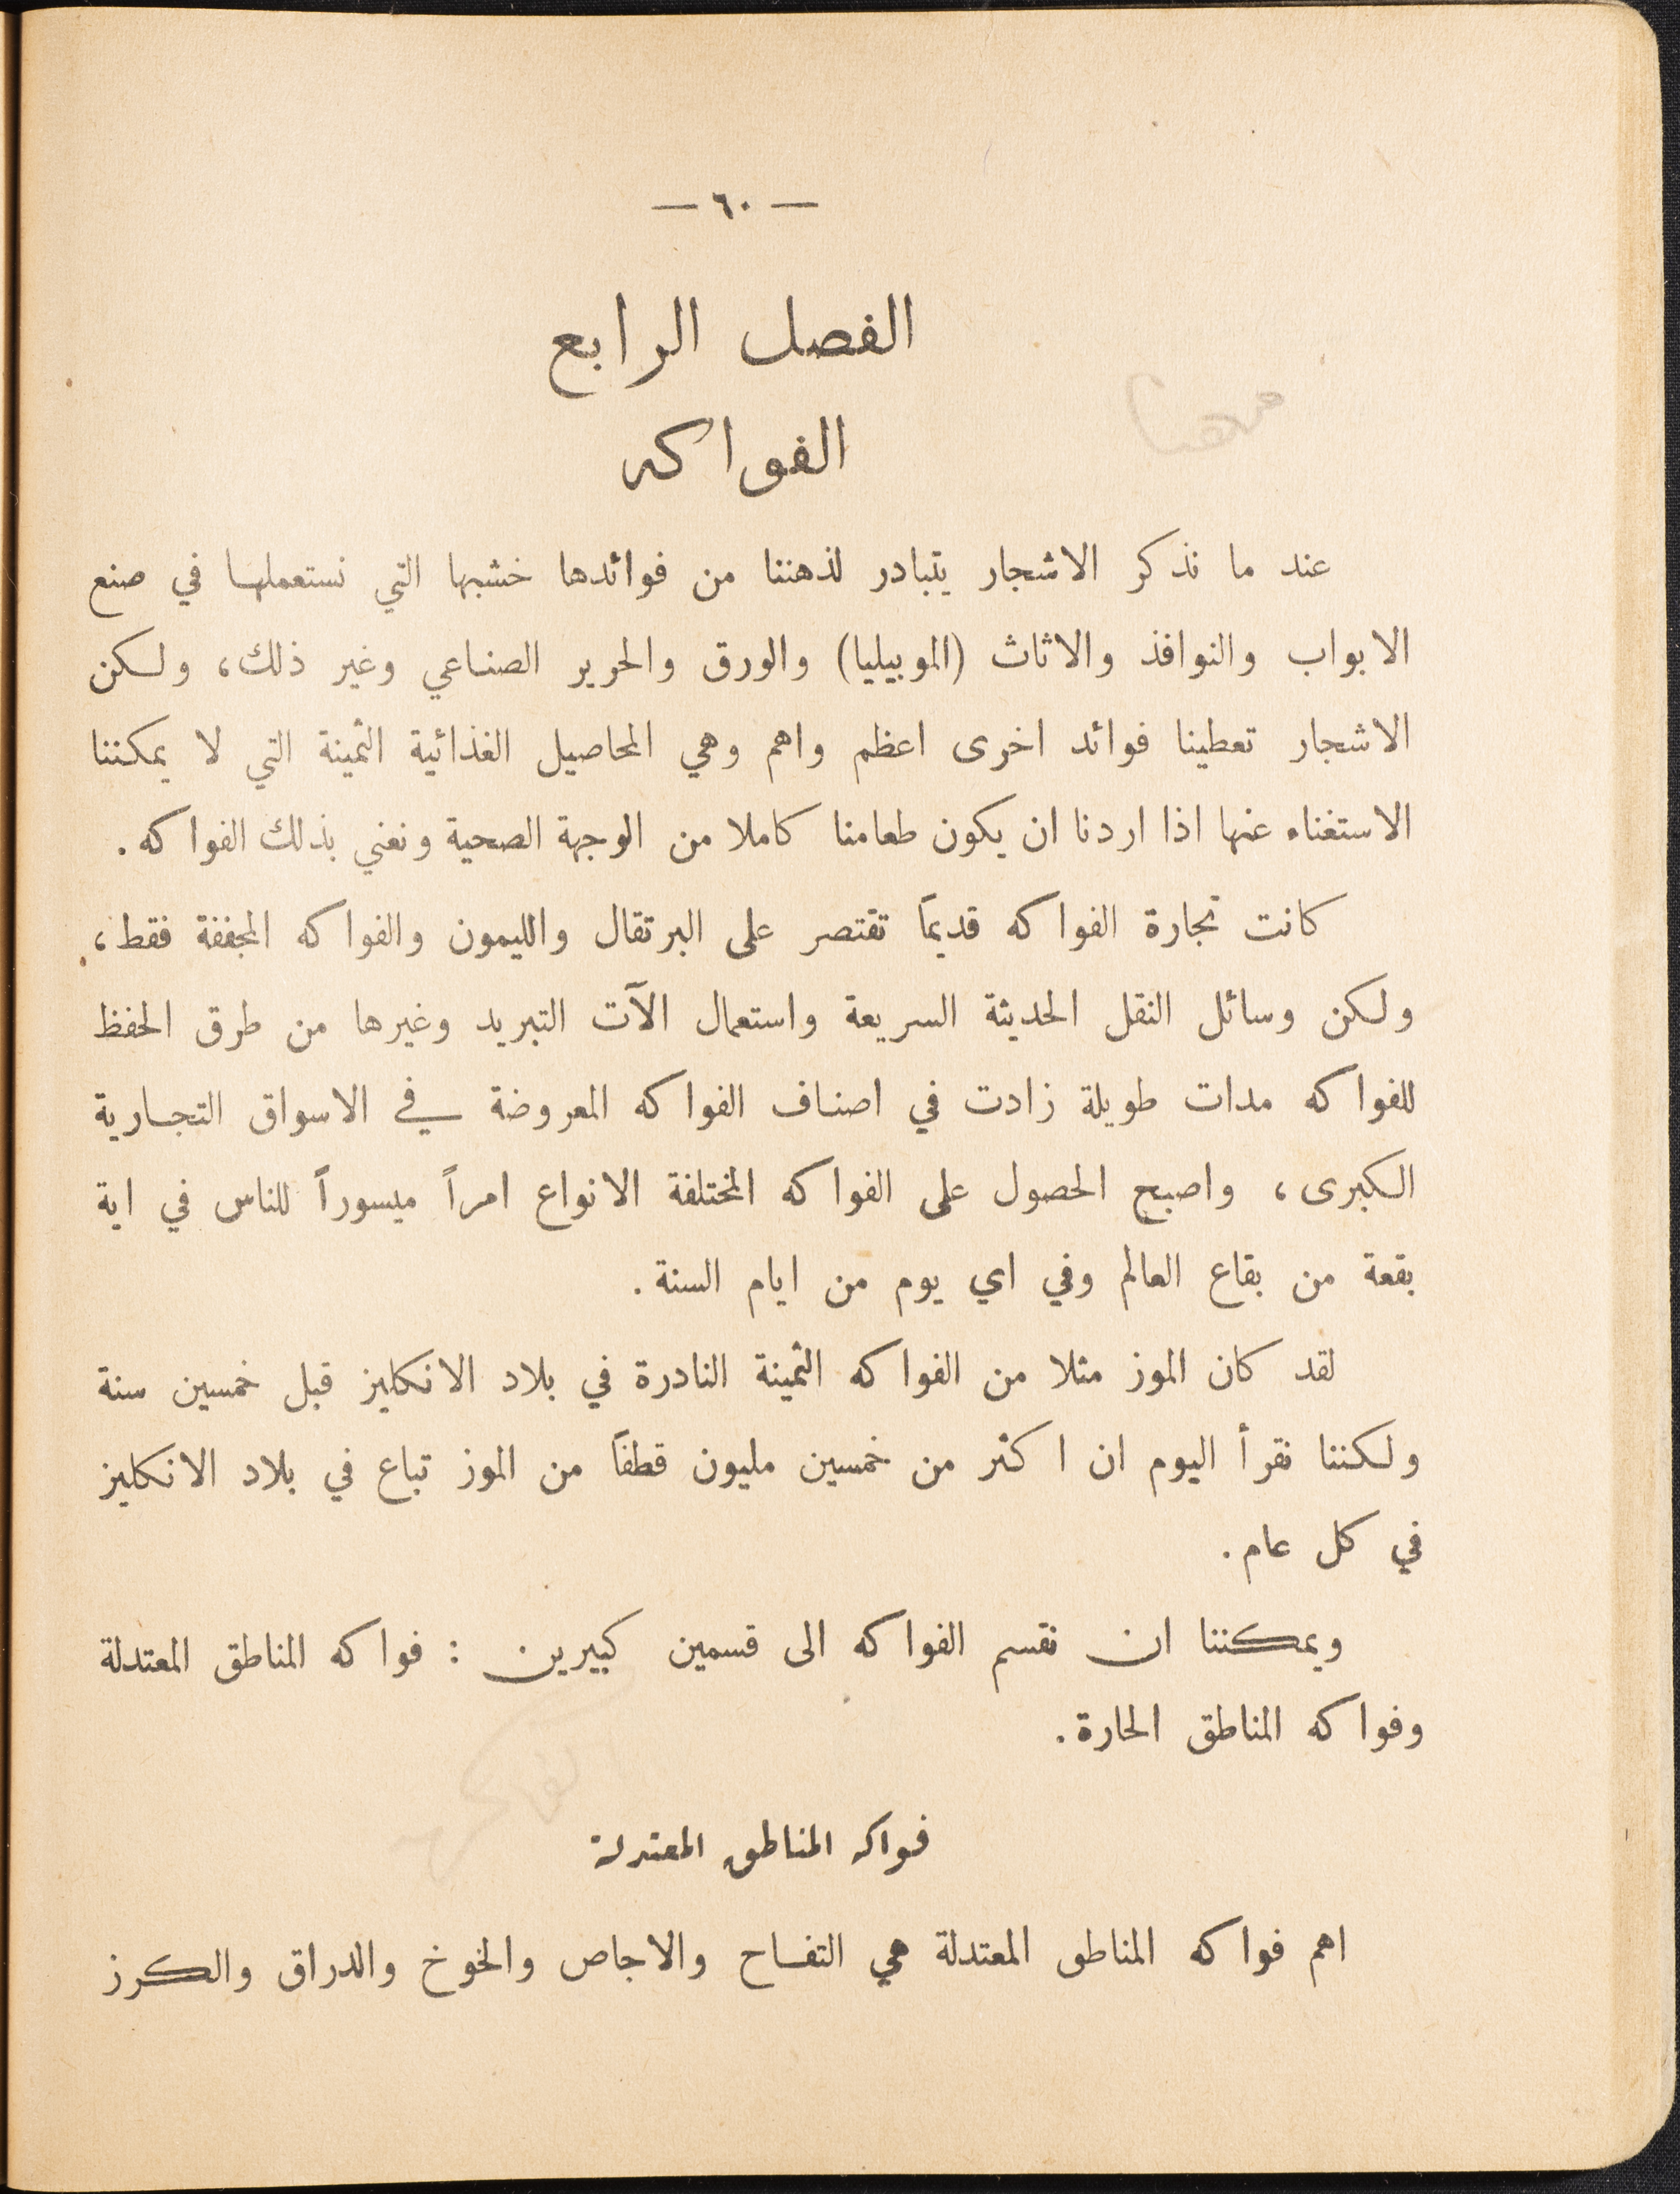 — ٦٠ —
الفصل الرابع
الفواكه
عند ما نذكر الاشجار يتبادر لذهننا من فوائدها خشبها التي نستعملها في صنع
الابواب والنوافذ والاثاث (الموبيليا) والورق والحرير الصناعي وغير ذلك، ولكن
الاشجار تعطينا فوائد اخرى اعظم واهم وهي المحاصيل الغذائية الثمينة التي لا يمكننا
الاستغناء عنها اذا اردنا ان يكون طعامنا كاملا من الوجهة الصحية ونعني بذلك الفواكه.
كانت تجارة الفواكه قديماً تقتصر على البرتقال والليمون والفواكه المجففة فقط،
ولكن وسائل النقل الحديثة السريعة واستعمال الآت التبريد وغيرها من طرق الحفظ
للفواكه مدات طويلة زادت في اصناف الفواكه المعروضة في الاسواق التجارية
الكبرى، واصبح الحصول على الفواكه المختلفة الانواع امراً ميسوراً للناس في اية
بقعة من بقاع العالم وفي اي يوم من ايام السنة.
لقد كان الموز مثلا من الفواكه الثمينة النادرة في بلاد الانكليز قبل خمسين سنة
ولكننا نقرأ اليوم ان اكثر من خمسين مليون قطفاً من الموز تباع في بلاد الانكليز
في كل عام.
ويمكننا ان نقسم الفواكه الى قسمين كبيرين : فواكه المناطق المعتدلة
وفواكه المناطق الحارة.
فواكه المناطق المعتدلة
اهم فواكه المناطق المعتدلة هي التفاح والاجاص والخوخ والدراق والكرز